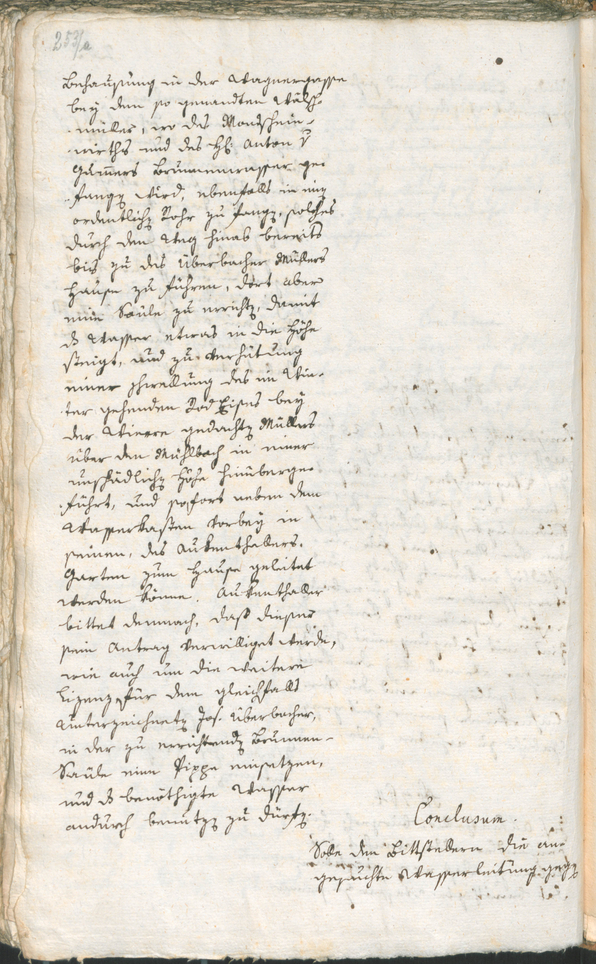 253/a
Behausung in der Wagnergasse
bey dem so genandten Wälsch
müller, wo des Mondschein-
wirths und des H: Anton v
Gumers Brunnenwasser ge-
fangen wird, ebenfalls in ein
ordentlichen Rohr zu fangen, solches
durch den Weg hinab bereits
bis zu des Überbacher Müllers
Hause zu führen, dort aber
eine Säule zu errichten, damit
das Wasser etwas in die Höhe
steigt, und zu Verhütung
einer schwellung des im Win-
ter gehenden Eises bey
der gedachten Müllers
über den Mühlbach in einer
unschädlichen Höhe hinüberge-
führt, und sofort neben dem
Wasserkasten vorbey in
seinen, des Aukenthallers
Garten zum Hause geleitet
werden könne. Aukenthaller
bittet demnach, daß dieses
sein Antrag verwilliget werde,
wie auch um die weitere
Lizenz für dem gleichfalls
Unterzeichneten Jos. Überbacher,
in der zu errichtenden Brunnen-
Säule eine Pippe einsetzen,
und das benöthigte Wasser
andurch benutzen zu dürfen.
Conclusum.
Solle den Bittstellern die an-
gesuchte Wasserleitung gegen